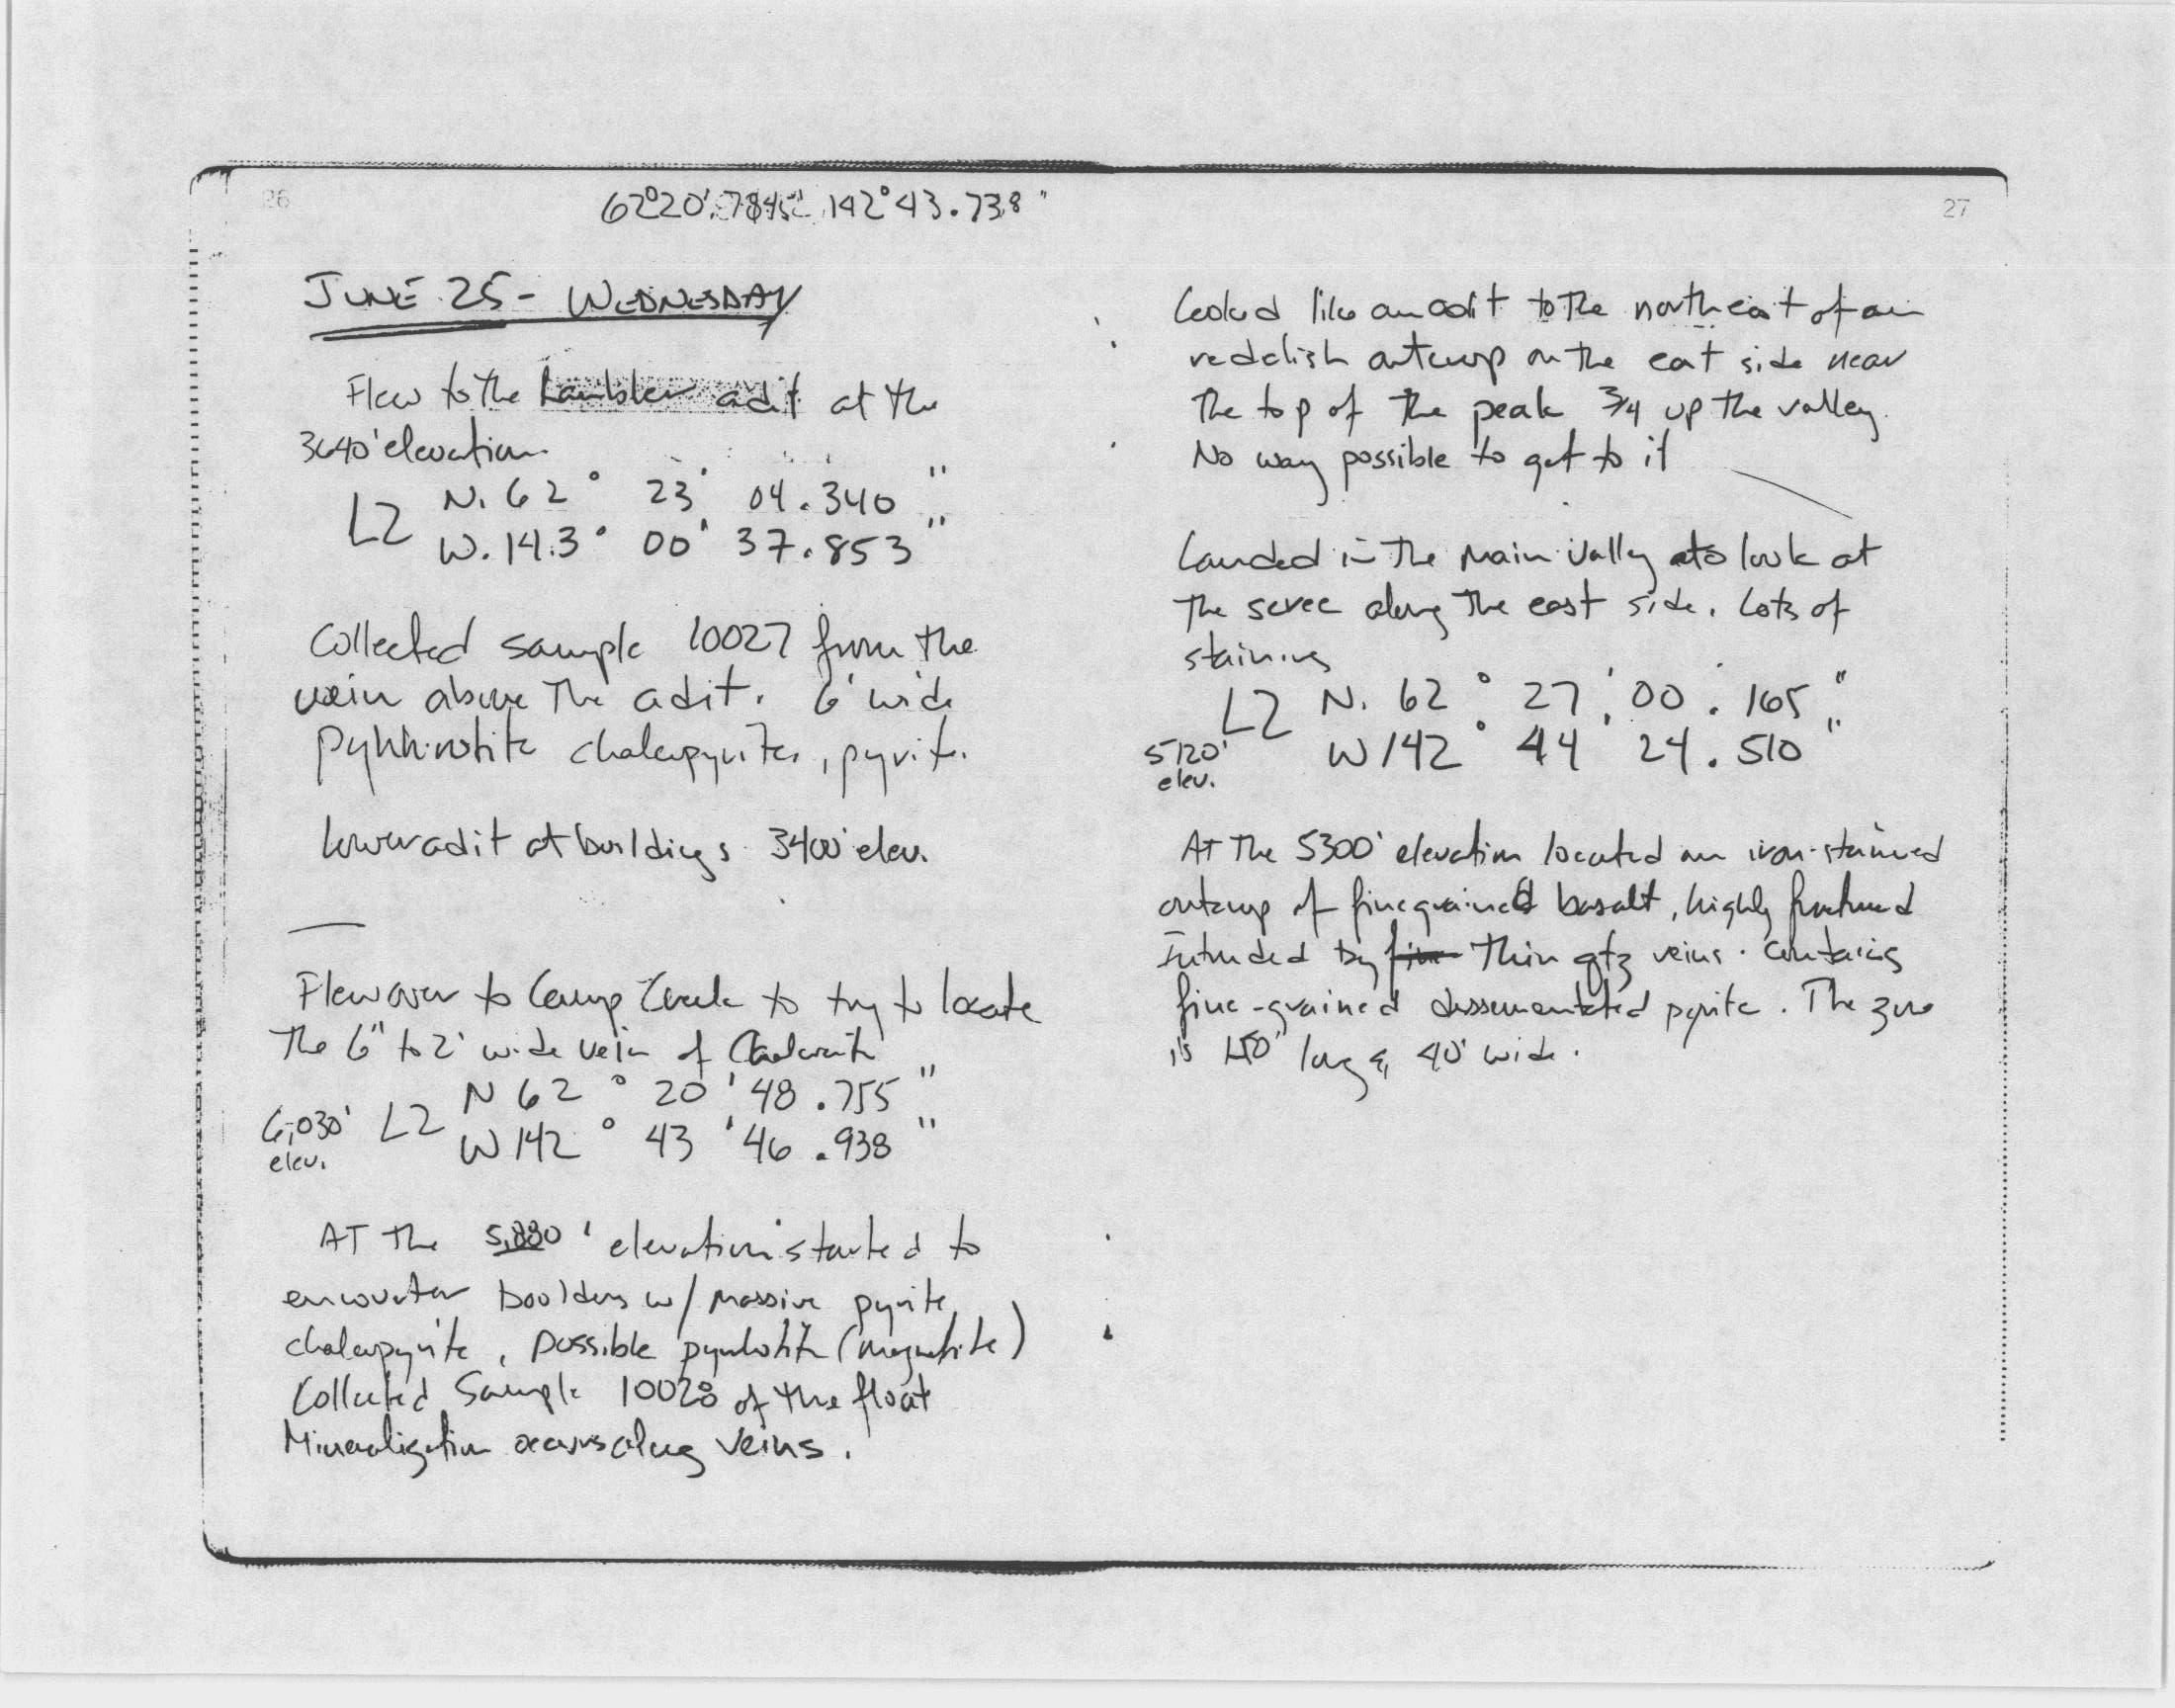 26
62°20'.7845" 142°43.738"
JUNE 25 - WEDNESDAY
Flew to the adit at the
3640' elevation
LZ N. 62° 23' 04.340"
W. 143° 00' 37.853"
Collected sample 10027 from the
vein above The adit. 6' wide
chalcopyrite, pyrite.
lower adit at buildings 3400' elev.
Flew over to Camp Creek to try to locate
The 6" to 2' wide vein of
LZ N 62° 20' 48.755"
6,030' elev. W 142° 43' 46.938"
AT The ' elevation started to
encounter boulders w/ massive pyrite,
chalcopyrite, possible pyrrhotite (magnetite)
Collected Sample 10028 of the float
Mineralization occurs along veins.
27
Looked like an adit to The northeast of an
reddish outcrop on the east side near
The top of The peak 3/4 up the valley.
No way possible to get to it
Landed in The main Vally to look at
The scree along The east side. Lots of
staining
LZ N. 62° 27' 00.165"
5120' elev. W 142° 44' 24.510"
AT The 5300' elevation located an iron-stained
outcrop of fine grained basalt, highly fractured
Intruded by fine Thin qtz veins. Contains
fine-grained dissementated pyrite. The zone
is long & 40' wide.